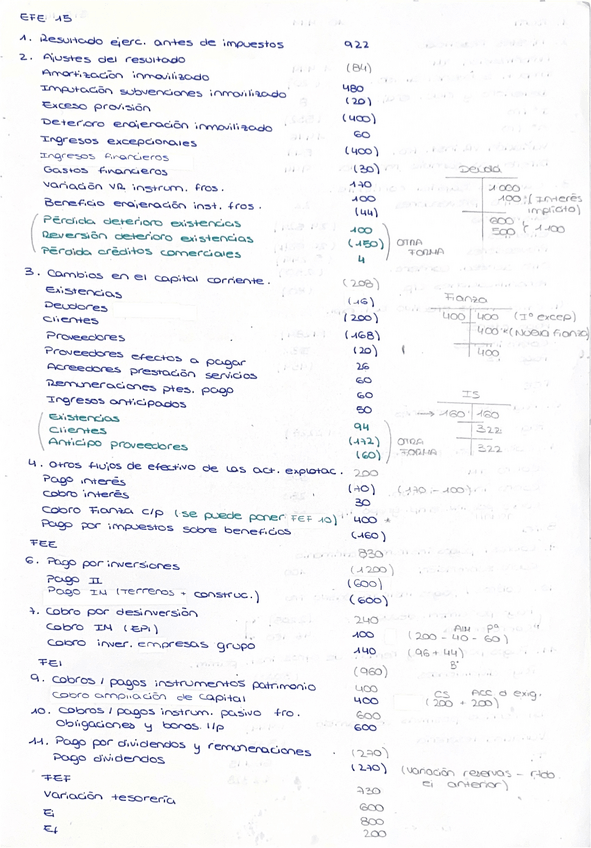 EFE 15
1. Resultado ejerc. antes de impuestos 922
2. Ajustes del resultado (84)
Amortización inmovilizado 480
Imputación subvenciones inmovilizado (20)
Exceso provisión (400)
Deterioro enajenación inmovilizado 60
Ingresos excepcionales (400)
Ingresos financieros (30)
Gastos financieros 170
Variación VR instrum. fros. 100
Beneficio enajenación inst. fros. (44)
Pérdida deterioro existencias 100
Reversión deterioro existencias (150) OTRA
Pérdida créditos comerciales 4 FORMA
Deuda
1000
100 (Interés
implícito)
600
500 1100
3. Cambios en el capital corriente. (208)
Existencias (16)
Deudores (200)
Clientes (168)
Proveedores (20)
Proveedores efectos a pagar 26
Acreedores prestación servicios 60
Remuneraciones ptes. pago 60
Ingresos anticipados 50
Existencias 94
Clientes (172) OTRA
Anticipo proveedores (60) FORMA
Fianza
400 400 (Iº excep)
400 (Nueva Fianza)
400
IS
→ 160 160
322
322
4. Otros flujos de efectivo de las act. explotac. 200
Pago interés (70) (170 - 100)
Cobro interés 30
Cobro Fianza c/p (se puede poner FEF 10) 400
Pago por impuestos sobre beneficios (160)
FEE 830
6. Pago por inversiones (1200)
Pago II (600)
Pago IM (terrenos + construc.) (600)
7. Cobro por desinversión 240
Cobro IM (EPI) 100 (200 - 40 - 60)
AIM Pª
Cobro inver. empresas grupo 140 (96 + 44)
Bº
FEI (960)
9. Cobros / pagos instrumentos patrimonio 400
Cobro ampliación de capital 400 (200 + 200)
CS Acc. d exig.
10. Cobros / pagos instrum. pasivo fro. 600
Obligaciones y bonos l/p 600
11. Pago por dividendos y remuneraciones (270)
Pago dividendos (270) (variación reservas - rtdo.
ej anterior)
FEF 730
Variación tesorería 600
Ei 800
Ef 200